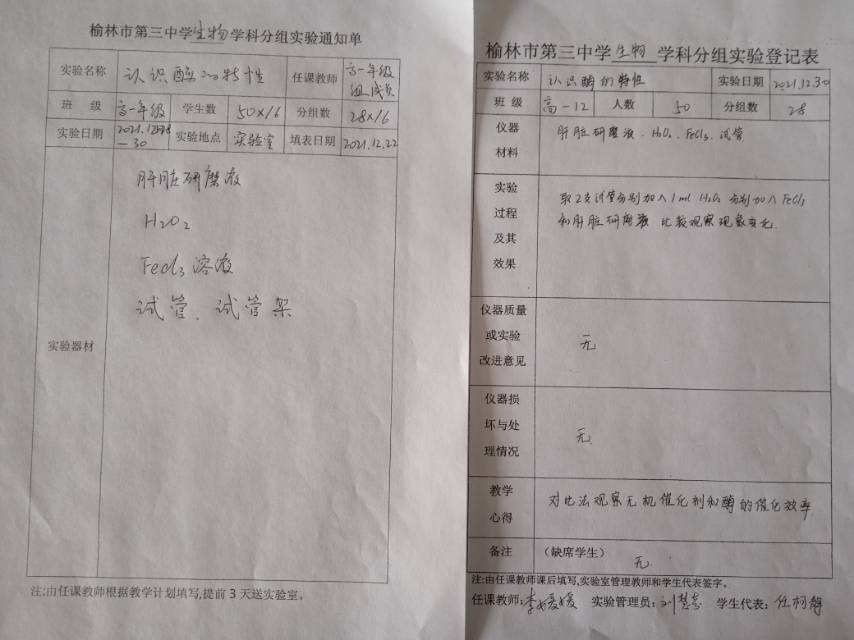 榆林市第三中学生物学科分组实验通知单
实验名称 认识酶的特性 任课教师 高一年级组成员
班 级 高一年级 学生数 50×16 分组数 28×16
实验日期 2021.12.28—30 实验地点 实验室 填表日期 2021.12.22
实验器材
肝脏研磨液
H2O2
FeCl3 溶液
试管、试管架
注:由任课教师根据教学计划填写,提前3天送实验室。
榆林市第三中学生物学科分组实验登记表
实验名称 认识酶的特性 实验日期 2021.12.30
班 级 高一12 人数 50 分组数 28
仪器材料 肝脏研磨液、H2O2、FeCl3、试管
实验过程及其效果
取2支试管分别加入1ml H2O2 分别加入FeCl3
和肝脏研磨液 比较观察现象变化.
仪器质量或实验改进意见 无
仪器损坏与处理情况 无
教学心得 对比法观察无机催化剂和酶的催化效率
备注 (缺席学生) 无
注:由任课教师课后填写,实验室管理教师和学生代表签字。
任课教师:李媛媛 实验管理员: 学生代表:任柯静